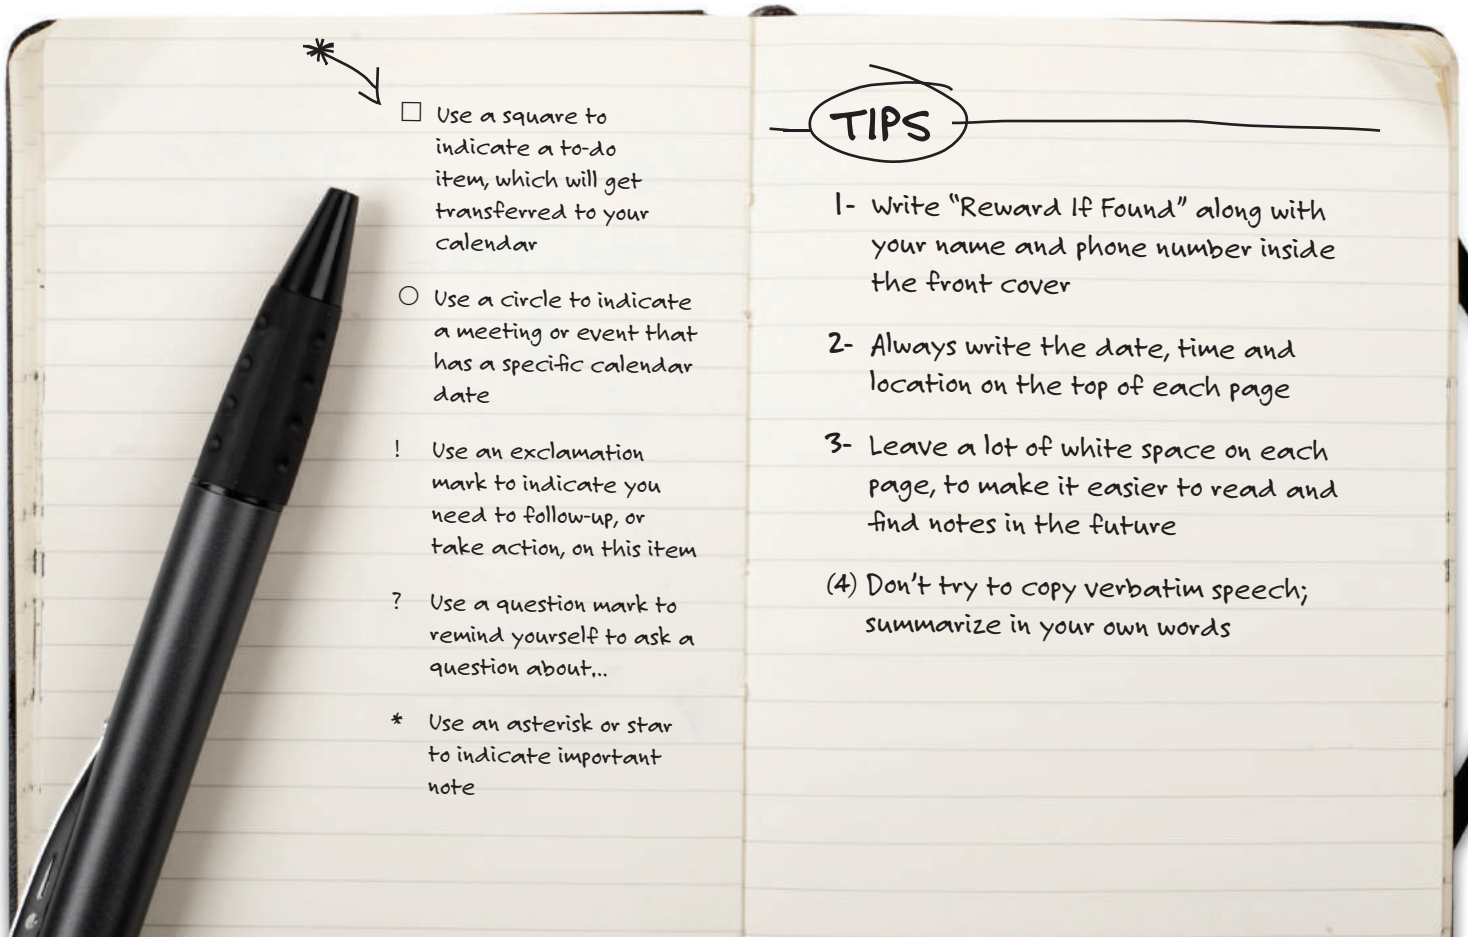 *
□ Use a square to
indicate a to-do
item, which will get
transferred to your
calendar
○ Use a circle to indicate
a meeting or event that
has a specific calendar
date
! Use an exclamation
mark to indicate you
need to follow-up, or
take action, on this item
? Use a question mark to
remind yourself to ask a
question about...
* Use an asterisk or star
to indicate important
note
TIPS
1- Write "Reward If Found" along with
your name and phone number inside
the front cover
2- Always write the date, time and
location on the top of each page
3- Leave a lot of white space on each
page, to make it easier to read and
find notes in the future
(4) Don't try to copy verbatim speech;
summarize in your own words